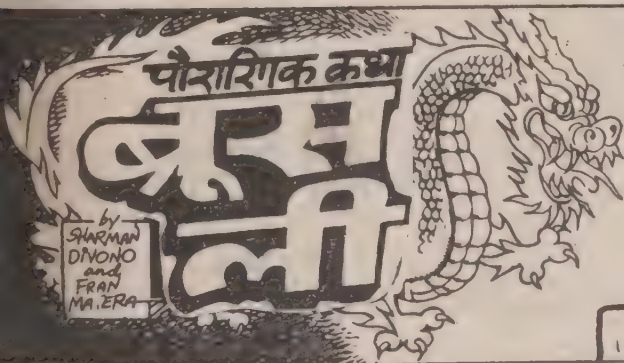 पौराणिक कथा
ब्रूस
ली
by
SHARMAN
DIVONO
and
FRAN
MA.ERA